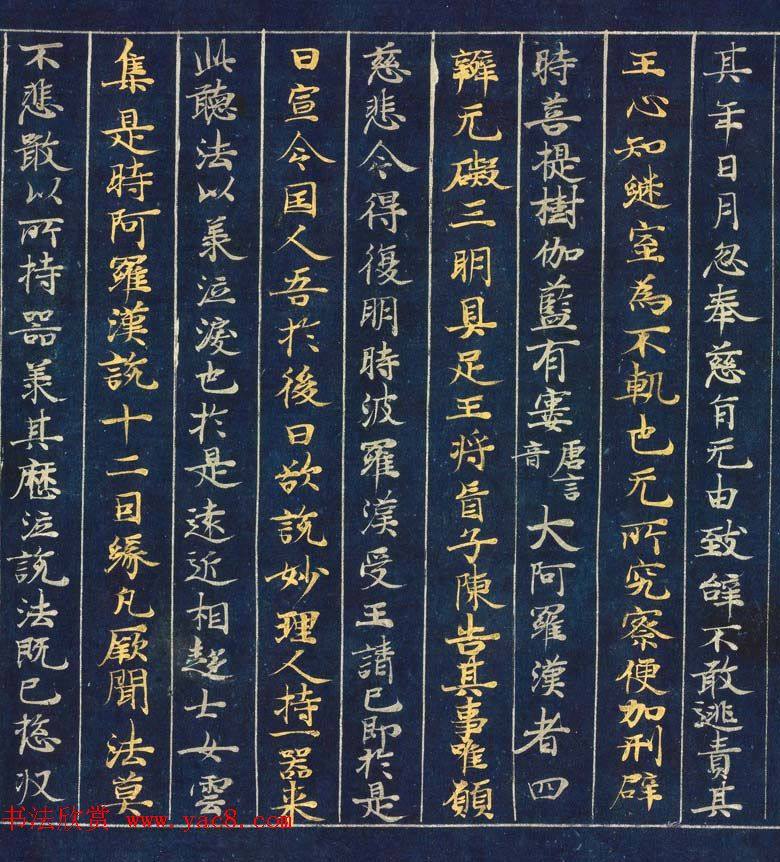 其年日月忽奉慈旨无由致辝不敢逃責其
王心知継室為不軌也无所究察便加刑辟
時菩提樹伽藍有寠唐言音大阿羅漢者四
辯无礙三明具足王将盲子陳告其事唯願
慈悲令得復明時波羅漢受王請已即於是
日宣令国人吾於後日欲說妙理人持一器来
此聴法以羕泣淚也於是遠近相趍士女雲
集是時阿羅漢說十二因緣凡厥聞法莫
不悲敢以所持器羕其歴泣說法既已惣収
书法欣赏 www.yac8.com